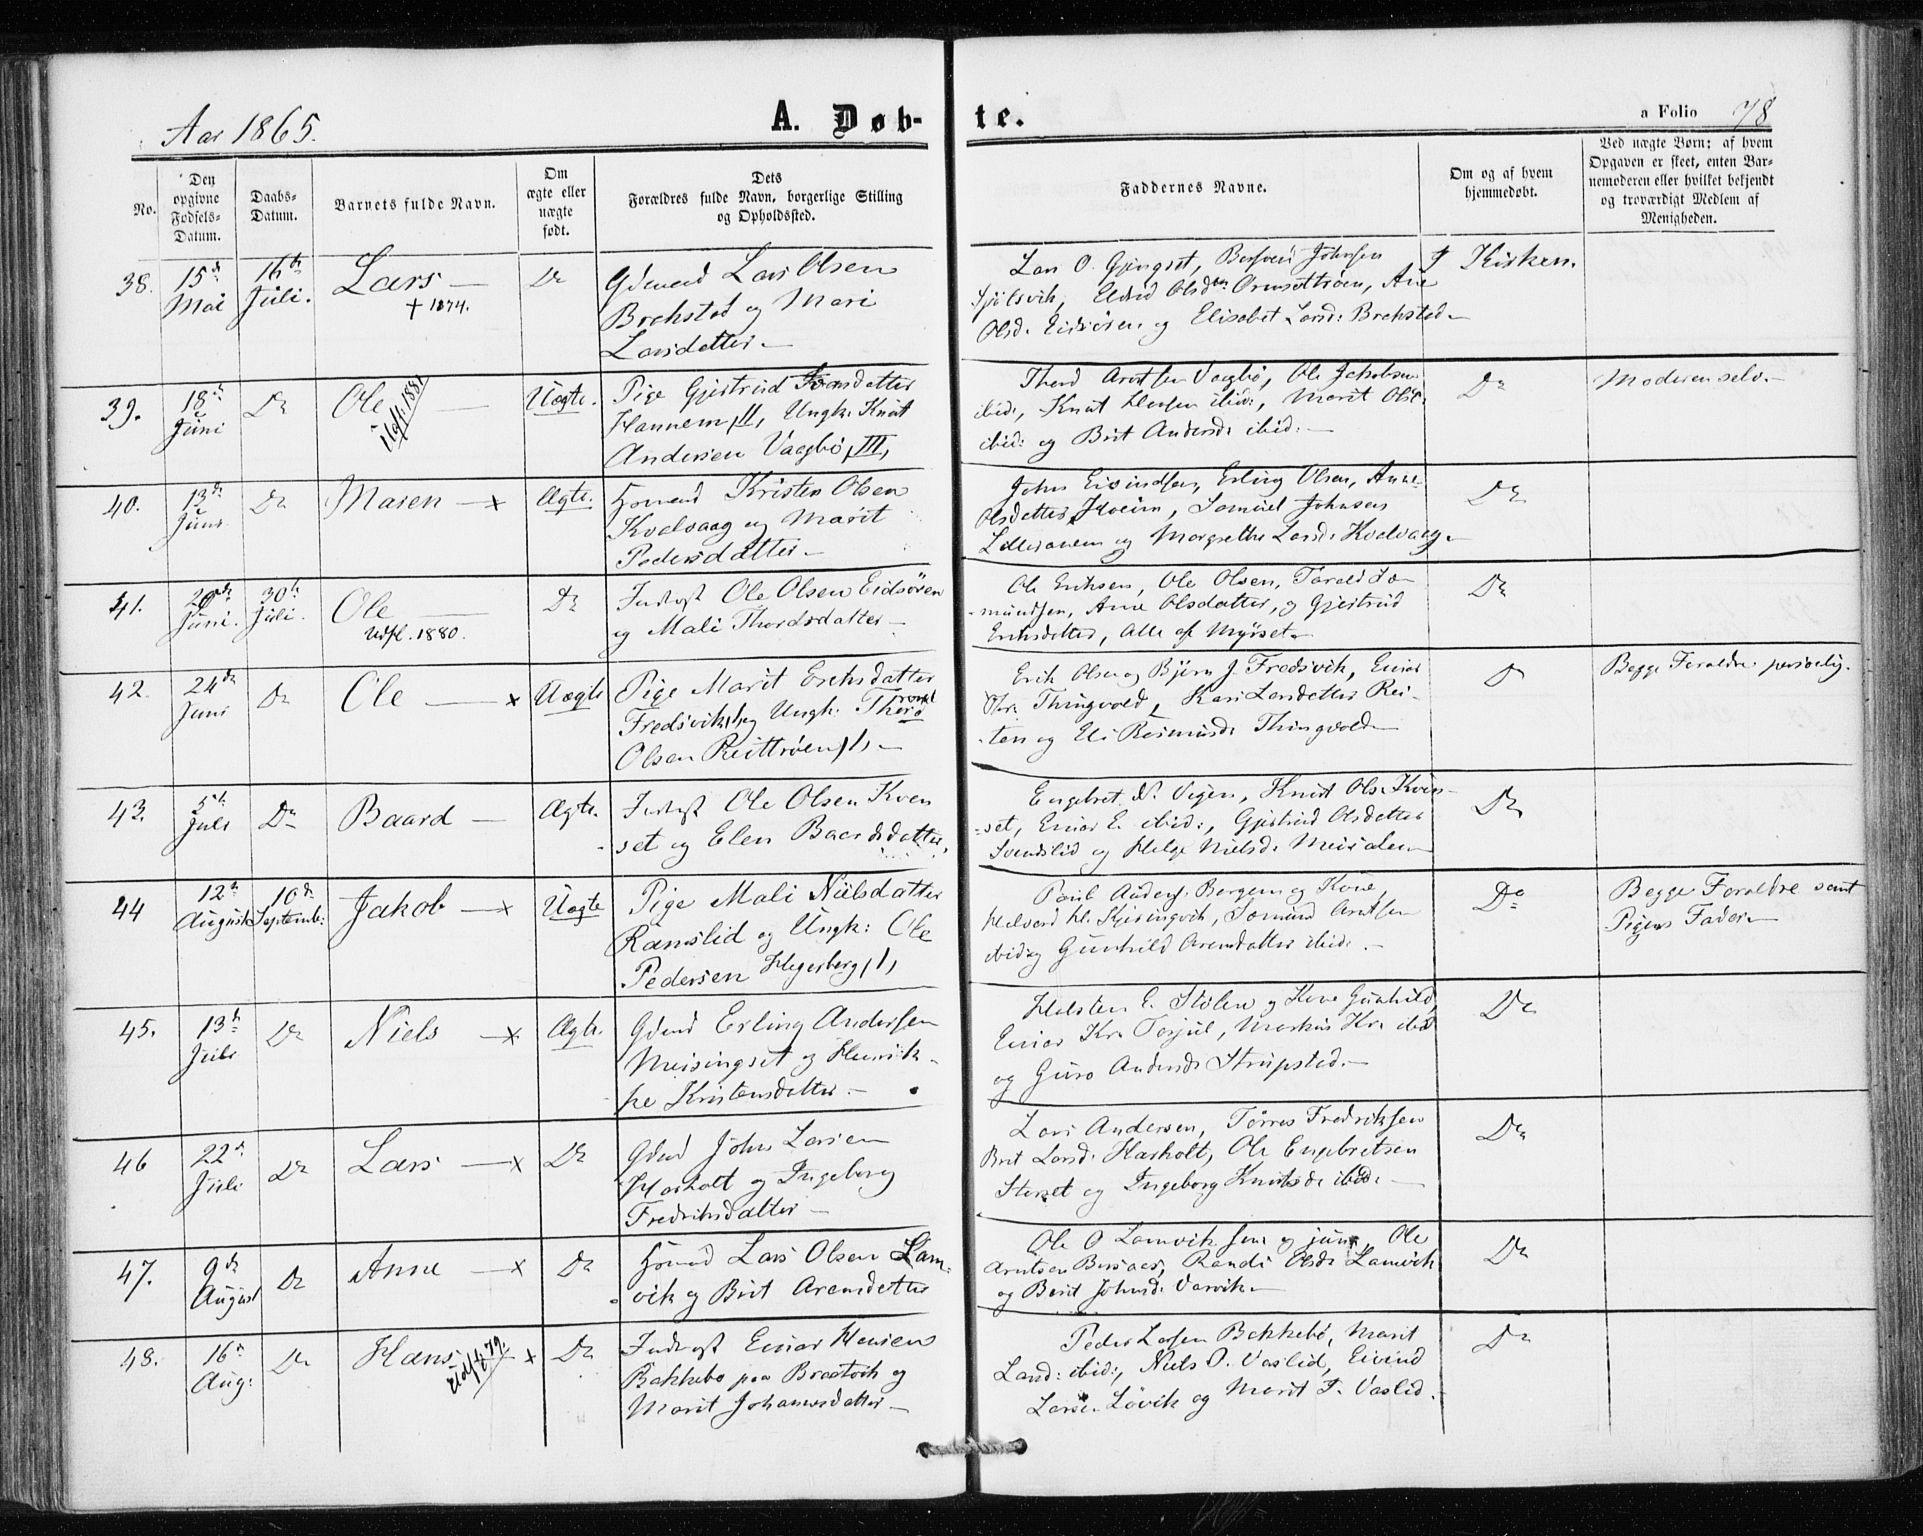 Aar 1865.
A. Døb-
te.
a Folio 78
No.
Den opgivne Fødsels-Datum.
Daabs-Datum.
Barnets fulde Navn.
Om ægte eller uægte født.
Dets Forældres fulde Navn, borgerlige Stilling og Opholdssted.
Faddernes Navne.
Om og af hvem hjemmedøbt.
Ved uægte Børn: af hvem Opgaven er skeet, enten Barnemoderen eller hvilket bekjendt og troværdigt Medlem af Menigheden.
38. 15de Mai 16de Juli. Lars — † 1874. Do
Gdmend Lars Olsen
Brekstad og Mari
Larsdatter —
Lars O. Gjengset, Johnsen
Ane
Olsd. Eidsören og Elisabet Larsd: Brekstad —
Kirken.
39. 18de Juni Do Ole Udfl. 1881 Uægte.
Pige Gjertrud
Hannem, II, Ungk. Knut
Andersen Vaagbö, III,
Arntsen Vaagbö, Ole Jakobsen
ibid:, Knut ibid:, Marit Olsd.
ibid: og Brit Andersd: ibid: —
Do
Moderen selv. —
40. 13de Juni Do Maren — x Ægte.
Kristen Olsen
Kvalvaag og Marit
Pedersdatter —
John Eivindsen, Erling Olsen, Ane
Olsdatter Hoem, Samuel Johnsen
og Margrethe Larsd: Kvalvaag —
Do
41. Juni. 30te Juli. Ole Udfl. 1880. Do
Inderst Ole Olsen Eidsören
og Mali Thordsdatter —
Ole Eriksen, Ole Olsen, Tarald Ta-
mundsen, Ane Olsdatter, og Gjertrud
Eriksdatter, Alle af Myrset —
Do
42. 24de Juni Do Ole — x Uægte
Pige Marit Eriksdatter
Fredsvik, I, og Ungk.
Olsen Reittrøen, I, —
Erik Olsen og Björn J. Fredsvik, Einar
Thingvold, Kari Larsdatter Rei-
-ten og Eli Rasmusd: Thingvold —
Do
Begge Forældre personlig.
43. 5te Juli Do Baard — Ægte.
Inderst Ole Olsen Kven
set og Elen Baardsdatter.
Engebret N. Vegen, Knut Olsen Kven-
-set, Einar E. ibid:, Gjertrud Olsdatter
Svendslid og Helge Nielsd: Meisalen —
Do
44 12te August 10de Septemb: Jakob — x Uægte
Pige Mali Nielsdatter
Ramslid og Ungk: Ole
Pedersen Hegerberg, I,
Paul Anders. Bergem og Kone,
Halvard H. Arntsen
ibid og Gunhild Arensdatter ibid: —
Do
Begge Forældre samt
Pigens Fader —
45. 13de Juli Do Niels — x Ægte.
Gdmd Erling Andersen
Meisingset og Henrik-
ke Kristensdatter —
Halsten E. Stölen og Kone Gunhild,
Einar Kr. Torjul, Markus Kr. ibid
og Guro Andersd: Strupstad. —
Do
46 22de Juli Do Lars — x Do
Gdmd John Larsen
Harholt og Ingeborg
Fredriksdatter —
Lars Andersen, Törres Fredriksen
Brit Larsd: Harholt, Ole Engebretsen
Storset og Ingeborg Knutsd: ibid: —
Do
47. 9de August Do Anne — x Do
Lars Olsen Lam-
vik og Brit Arensdatter
Ole O Lamvik sen. og jun., Ole
Arntsen Randi Olsd: Lamvik
og Berit Johnsd: Varvik —
Do
48. 16de Aug: Do Hans Udfl. 79. x Do
Inderst Einar Hansen
Bakkebö paa Brætvik og
Marit Johannesdatter —
Peder Larsen Bakkebö, Marit
Larsd: ibid:, Niels O. Vaslid, Eivind
Larsen Lövik og Marit T. Vaslid. —
Do